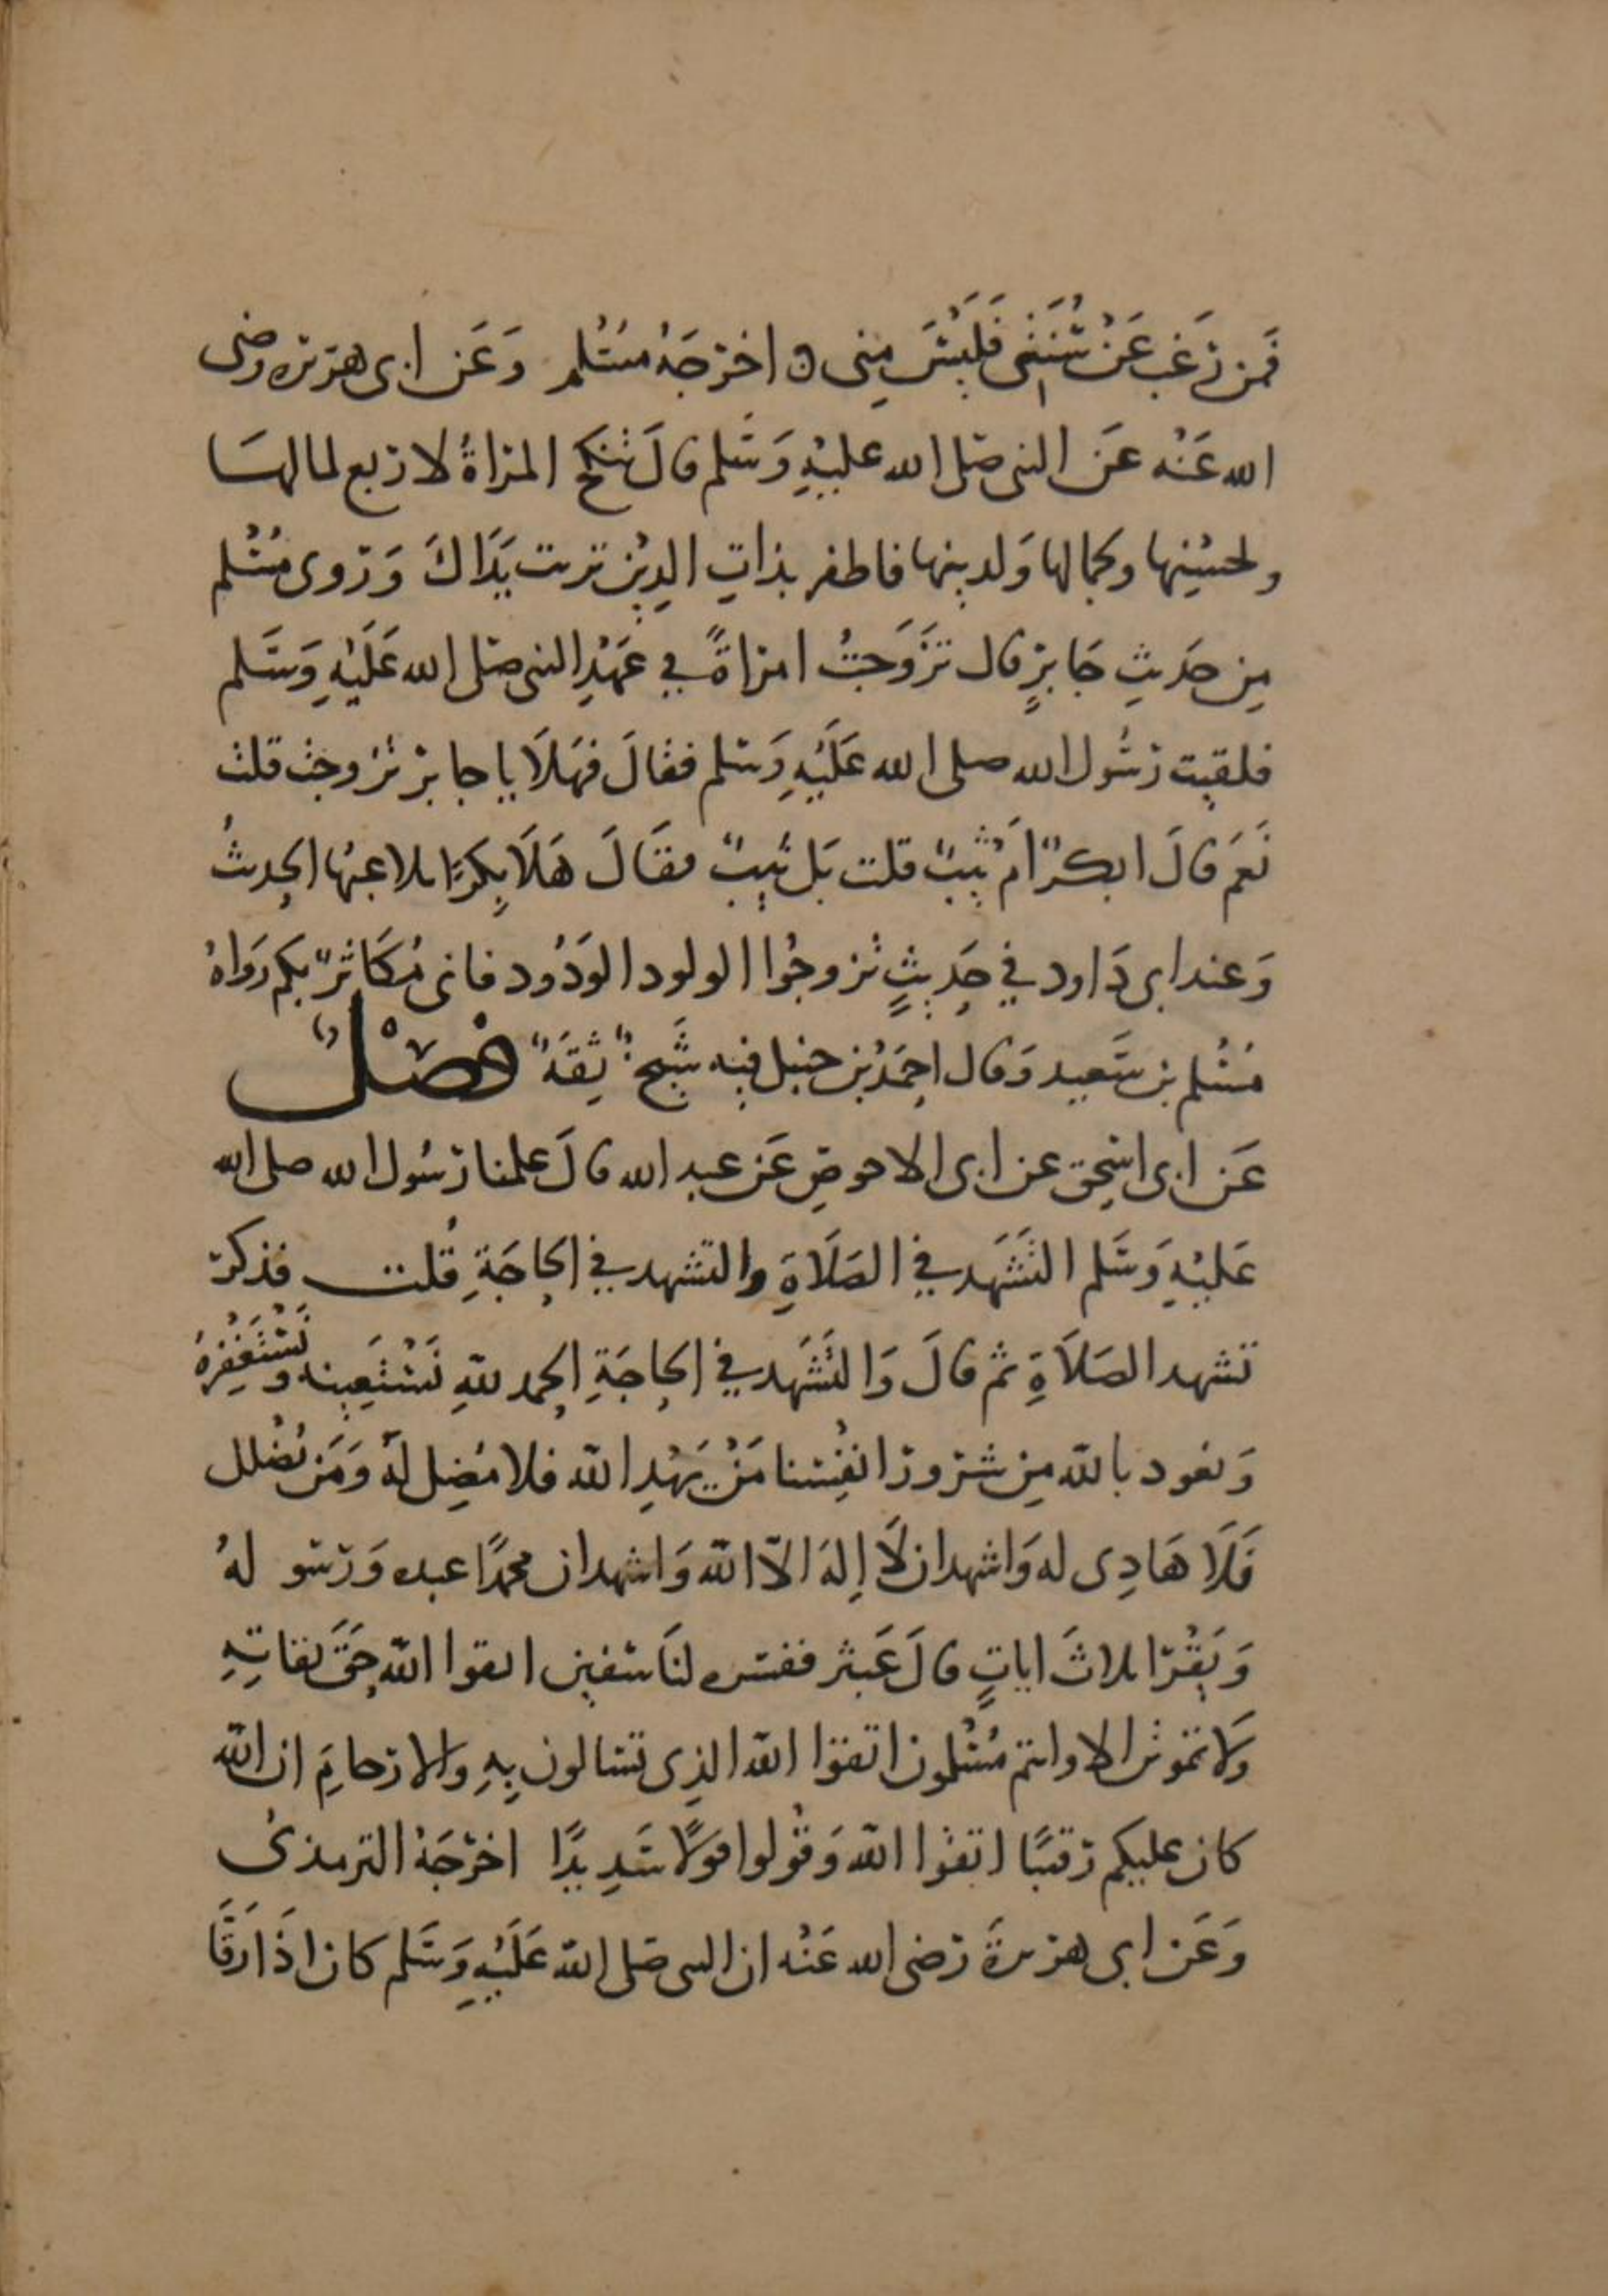 فَمن رَغبَ عَنْ سُنَّتِى فَلَيْسَ مِنى ه اخرَجَهُ مسْلم وَعَن ابى هريره رضى
الله عَنْه عَن النبى صَلى الله عليْهِ وَسَلم قالَ تنكَح المراةُ لاربع لمالهَا
ولحسَبِها وجمالها وَلدينها فاظفر بذاتِ الدِيْن تربت يَدَاكَ وَرَوى مُسْلم
مِن حَديثِ جَابرٍ قال تَزَوَجتُ امراةً في عَهْدِ النبى صَلى الله عَلَيْهِ وَسَلم
فلقيت رَسُول الله صلى الله عَلَيْهِ وَسَلم فقالَ فهَلَا يا جابر تزوجت قلت
نَعَم قالَ ابكرٌ امْ ثيبٌ قلت بَل ثيبٌ فقَالَ هَلَا بِكرًا تلاعبُها الحدِيثُ
وَعند ابى دَاود في حَدِيثٍ تزوجُوا الولود الوَدُود فانى مُكَاثرٌ بكم رَوَاهُ
مُسْلم بن سَعيد وَقال احمَدُ بْن حنبل فيه شَيخٌ ثِقَةٌ فصْلٌ
عَن ابى اسحِق عن ابى الاحوصِ عَن عبد الله قالَ علمنا رَسُول الله صلى الله
عَليْهِ وَسَلم التَشَهَد في الصَلَاةِ والتشهد في الحَاجَةِ قُلت فذكر
تشهد الصَلَاةِ ثم قالَ وَالتَشَهَد في الحاجَةِ الحمد للهِ نَسْتَعِينه وَنَسْتَغْفِرهُ
وَنعود بالله مِن شرور انفُسنا مَنْ يَهْدِ الله فلا مُضِل لَهُ وَمَن يُضْلل
فَلَا هَادِى له وَاشهد ان لَا إِلهَ الا الله وَاشهد ان محمدًا عبده وَرَسو لهُ
وَيَقْرا ثلاثَ اياتٍ قالَ عَبثر ففسره لنَا سفين اتقوا الله حَقَ تقاتِهِ
وَلا تموتن الا وانتم مُسْلمون اتقوا الله الذِى تسالون بِهِ والارحامَ ان الله
كان عليكم رقيبًا اتقوا الله وَقُولوا قولًا سَدِيدًا اخرَجَهُ الترمذىُ
وَعَن ابى هريرةَ رَضى الله عَنْه ان النبى صَلى الله عَلَيْهِ وَسَلم كان اذَا رَفَّا